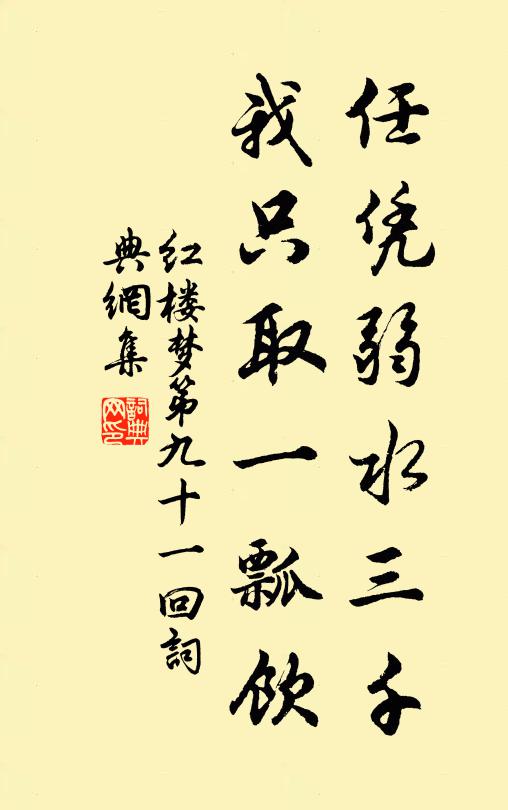 任凭弱水三千
我只取一瓢饮
红楼梦第九十一回詞
典網集
詞典
网印